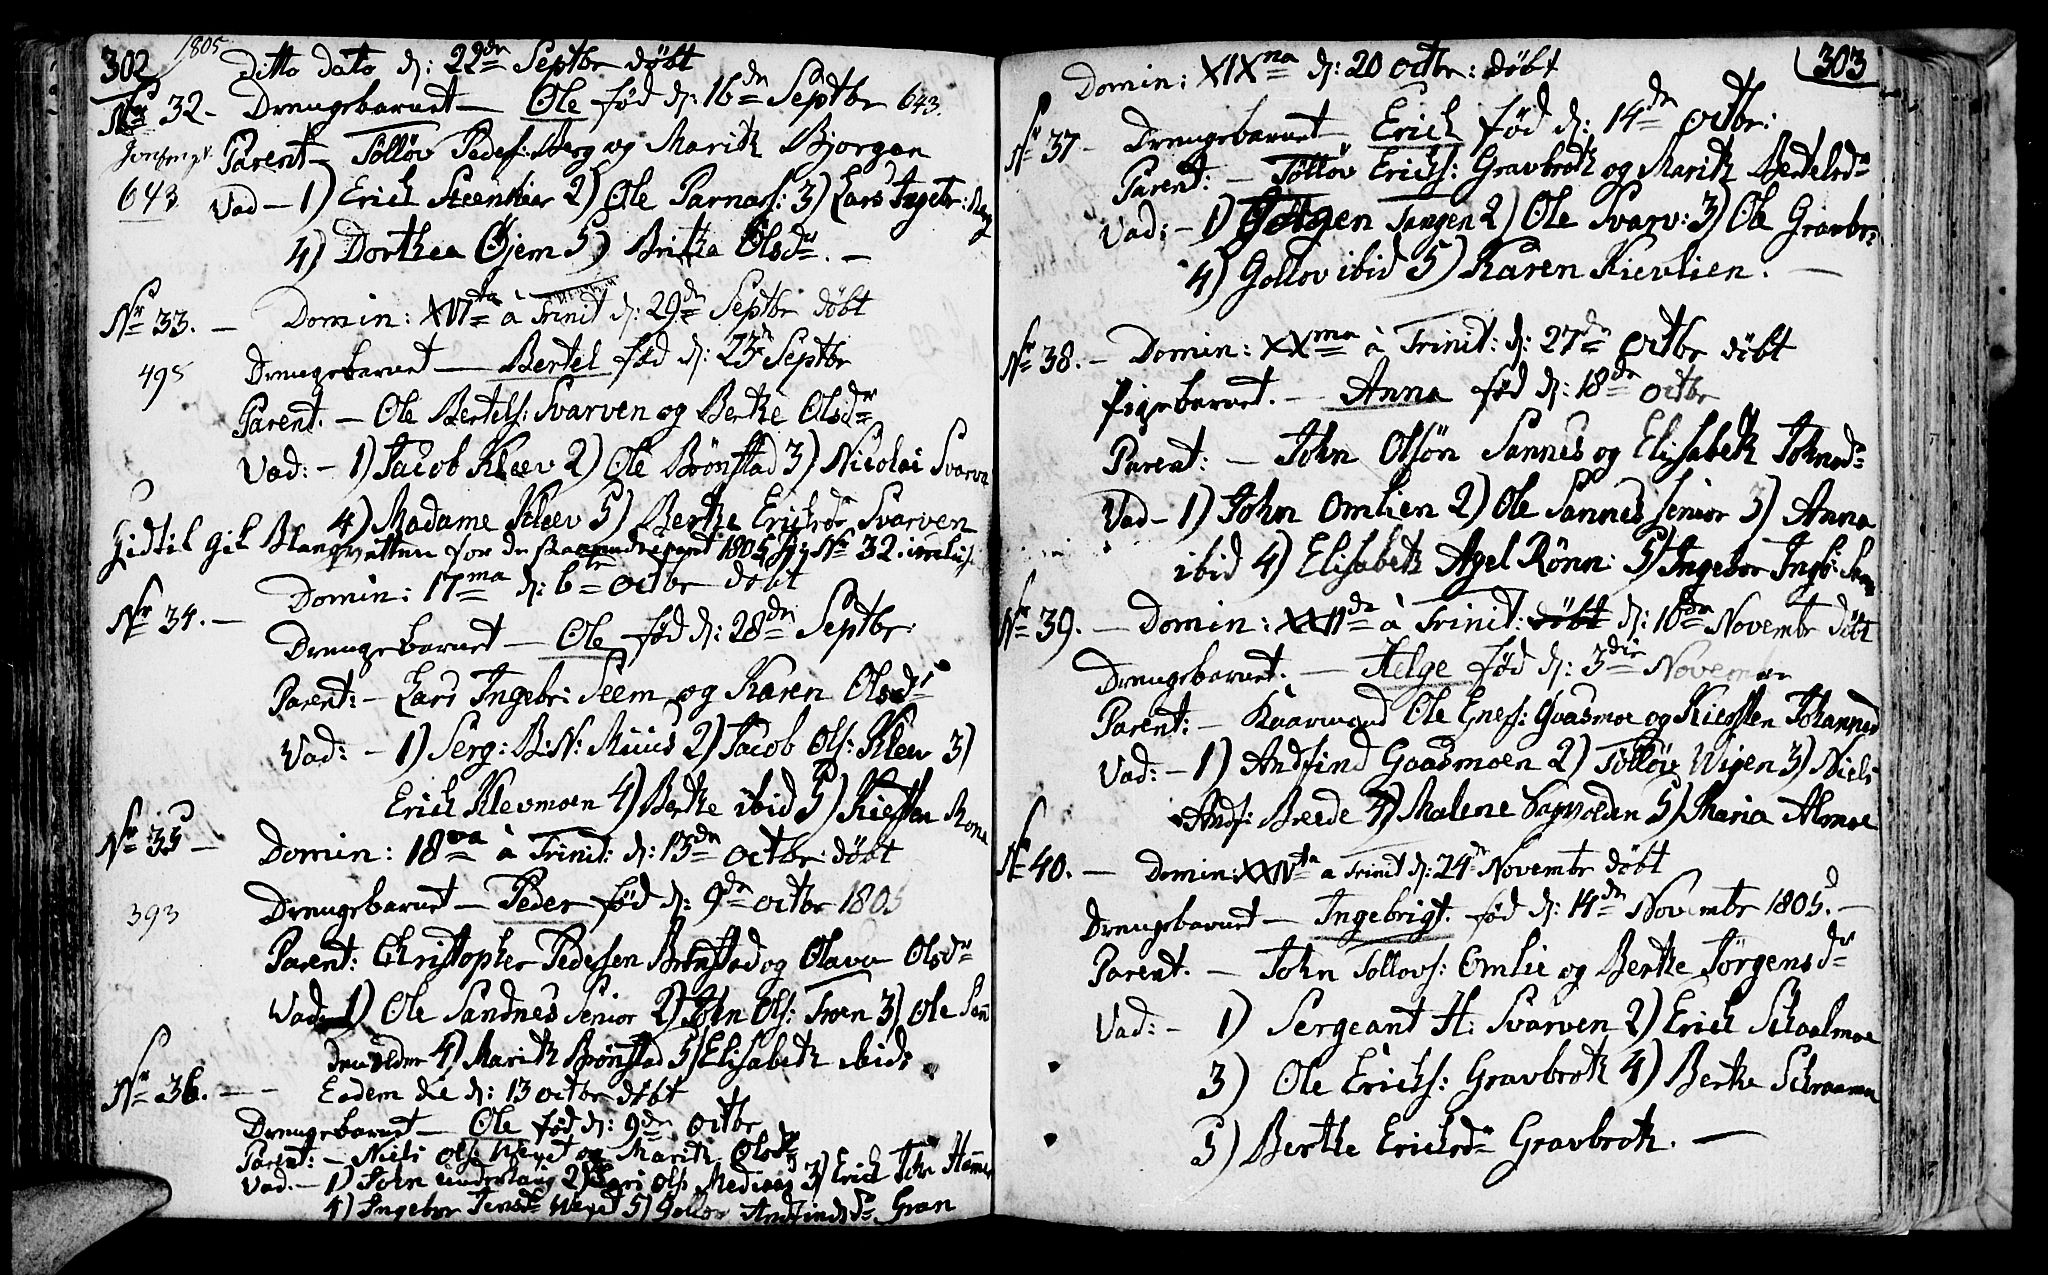 302 1805
Ditto dato d: 22de Septbr döbt
Nr 32 - Drengebarnet - Ole föd d: 16de Septbr 643.
Parent - Töllöv Peders: Berg og Marith Bjorgan
643 Vad - 1) Erich Steenkier 2) Ole Parnas: 3) Lars Ingebr: Berg
4) Dorthea Öjem 5) Britha Olsdr. -
Nr 33. - Domin: XVIta à Trinit d: 29de Septbr döbt
495 Drengebarnet - Bertel föd d: 23de Septbr
Parent. - Ole Bertels: Svarven og Berthe Olsdr
Vad: - 1) Jacob Kleev 2) Ole Brönstad 3) Nicolai Svarv
4) Madame Kleev 5) Berthe Erichsdr Svarven
Hidtil gik for 1805 Nr 32.
Domin: 17ma d: 6te Octbr döbt
Nr 34. - Drengebarnet - Ole föd d: 28de Septbr:
Parent: - Lars Ingebr: Seem og Karen Olsdr
Vad: - 1) Serg: B: N: Müüs 2) Jacob Ols: Kleev 3)
Erich Klevmoen 4) Berthe ibid 5) Kiesten Mone
Nr 35 - Domin: 18va à Trinit: d: 13de Octbr: döbt
393 Drengebarnet - Peder föd d: 9de Octbr 1805
Parent: Christopher Pedersen Brönstad og Olava Olsdr
Vad: 1) Ole Sandnes Senior 2) John Ols: Troen 3) Ole San
4) Marith Brönstad 5) Elisabeth ibid:
Nr 36. - - Eadem die d: 13 Octbr döbt
Drengebarnet - Ole föd d: 9de Octbr
Parent: - Niels Ols: Weget og Marith Olsdr
Vad. - 1) John 2) Ols 3) Erich
4) Ingebor Jensdr Weget 5) Gollov Andfindsdr Gran
303
Domin: XIXna d: 20 Octbr: döbt
Nr 37 - Drengebarnet - Erich föd d: 14de Octbr:
Parent: - Töllöv Erichs: Gravbroth og Marith Bertelsdr
Vad: - 1) Jörgen Tangen 2) Ole Svarv: 3) Ole Gravbr:
4) Gollov ibid 5) Karen Kievlien. -
Nr 38. - Domin: XXma à Trinit: d: 27de Octbr döbt
Pigebarnet. - Anna föd d: 18de Octbr
Parent: - John Olsön Sannes og Elisabeth Johnsdr
Vad - 1) John Omlien 2) Ole Sannes Senior 3) Anna
ibid 4) Elisabeth Agel Rönn: 5) Ingebor
Nr 39. - Domin: XXIIde à Trinit: döbt d: 10de Novembr döbt
Drengebarnet. - Helge föd d: 3die November
Parent: - Ole Enes: Gaasmoe og Kiesten Johannesd
Vad: - 1) Andfind Gaasmoen 2) Töllöv Wigen 3) Niels
Andf: Breede 4) Malene Sagvolden 5) Maria Almoe
Nr 40. - Domin: XXIVta a Trinit d: 24de Novembr döbt
Drengebarnet - Ingebrigt. föd d: 14de Novembr 1805. -
Parent. - John Tollovs: Omlie og Berthe Jörgensdr
Vad: - 1) Sergeant H: Svarven 2) Erich Schaalmoe
3) Ole Erichs: Gravbroth 4) Berthe
5) Berthe Erichsdr Gravbroth. -